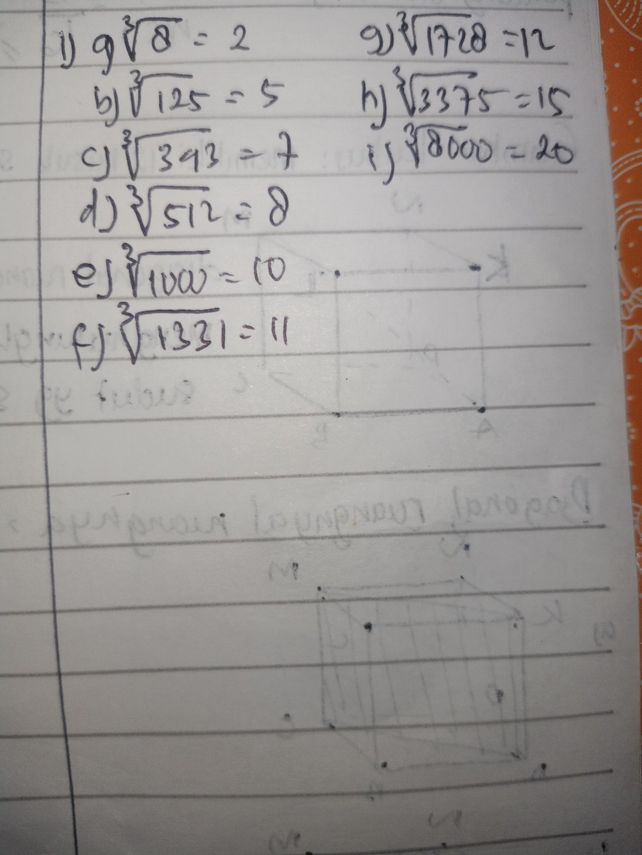 1) a) ∛8 = 2
b) ∛125 = 5
c) ∛343 = 7
d) ∛512 = 8
e) ∛1000 = 10
f) ∛1331 = 11
g) ∛1728 = 12
h) ∛3375 = 15
i) ∛8000 = 20